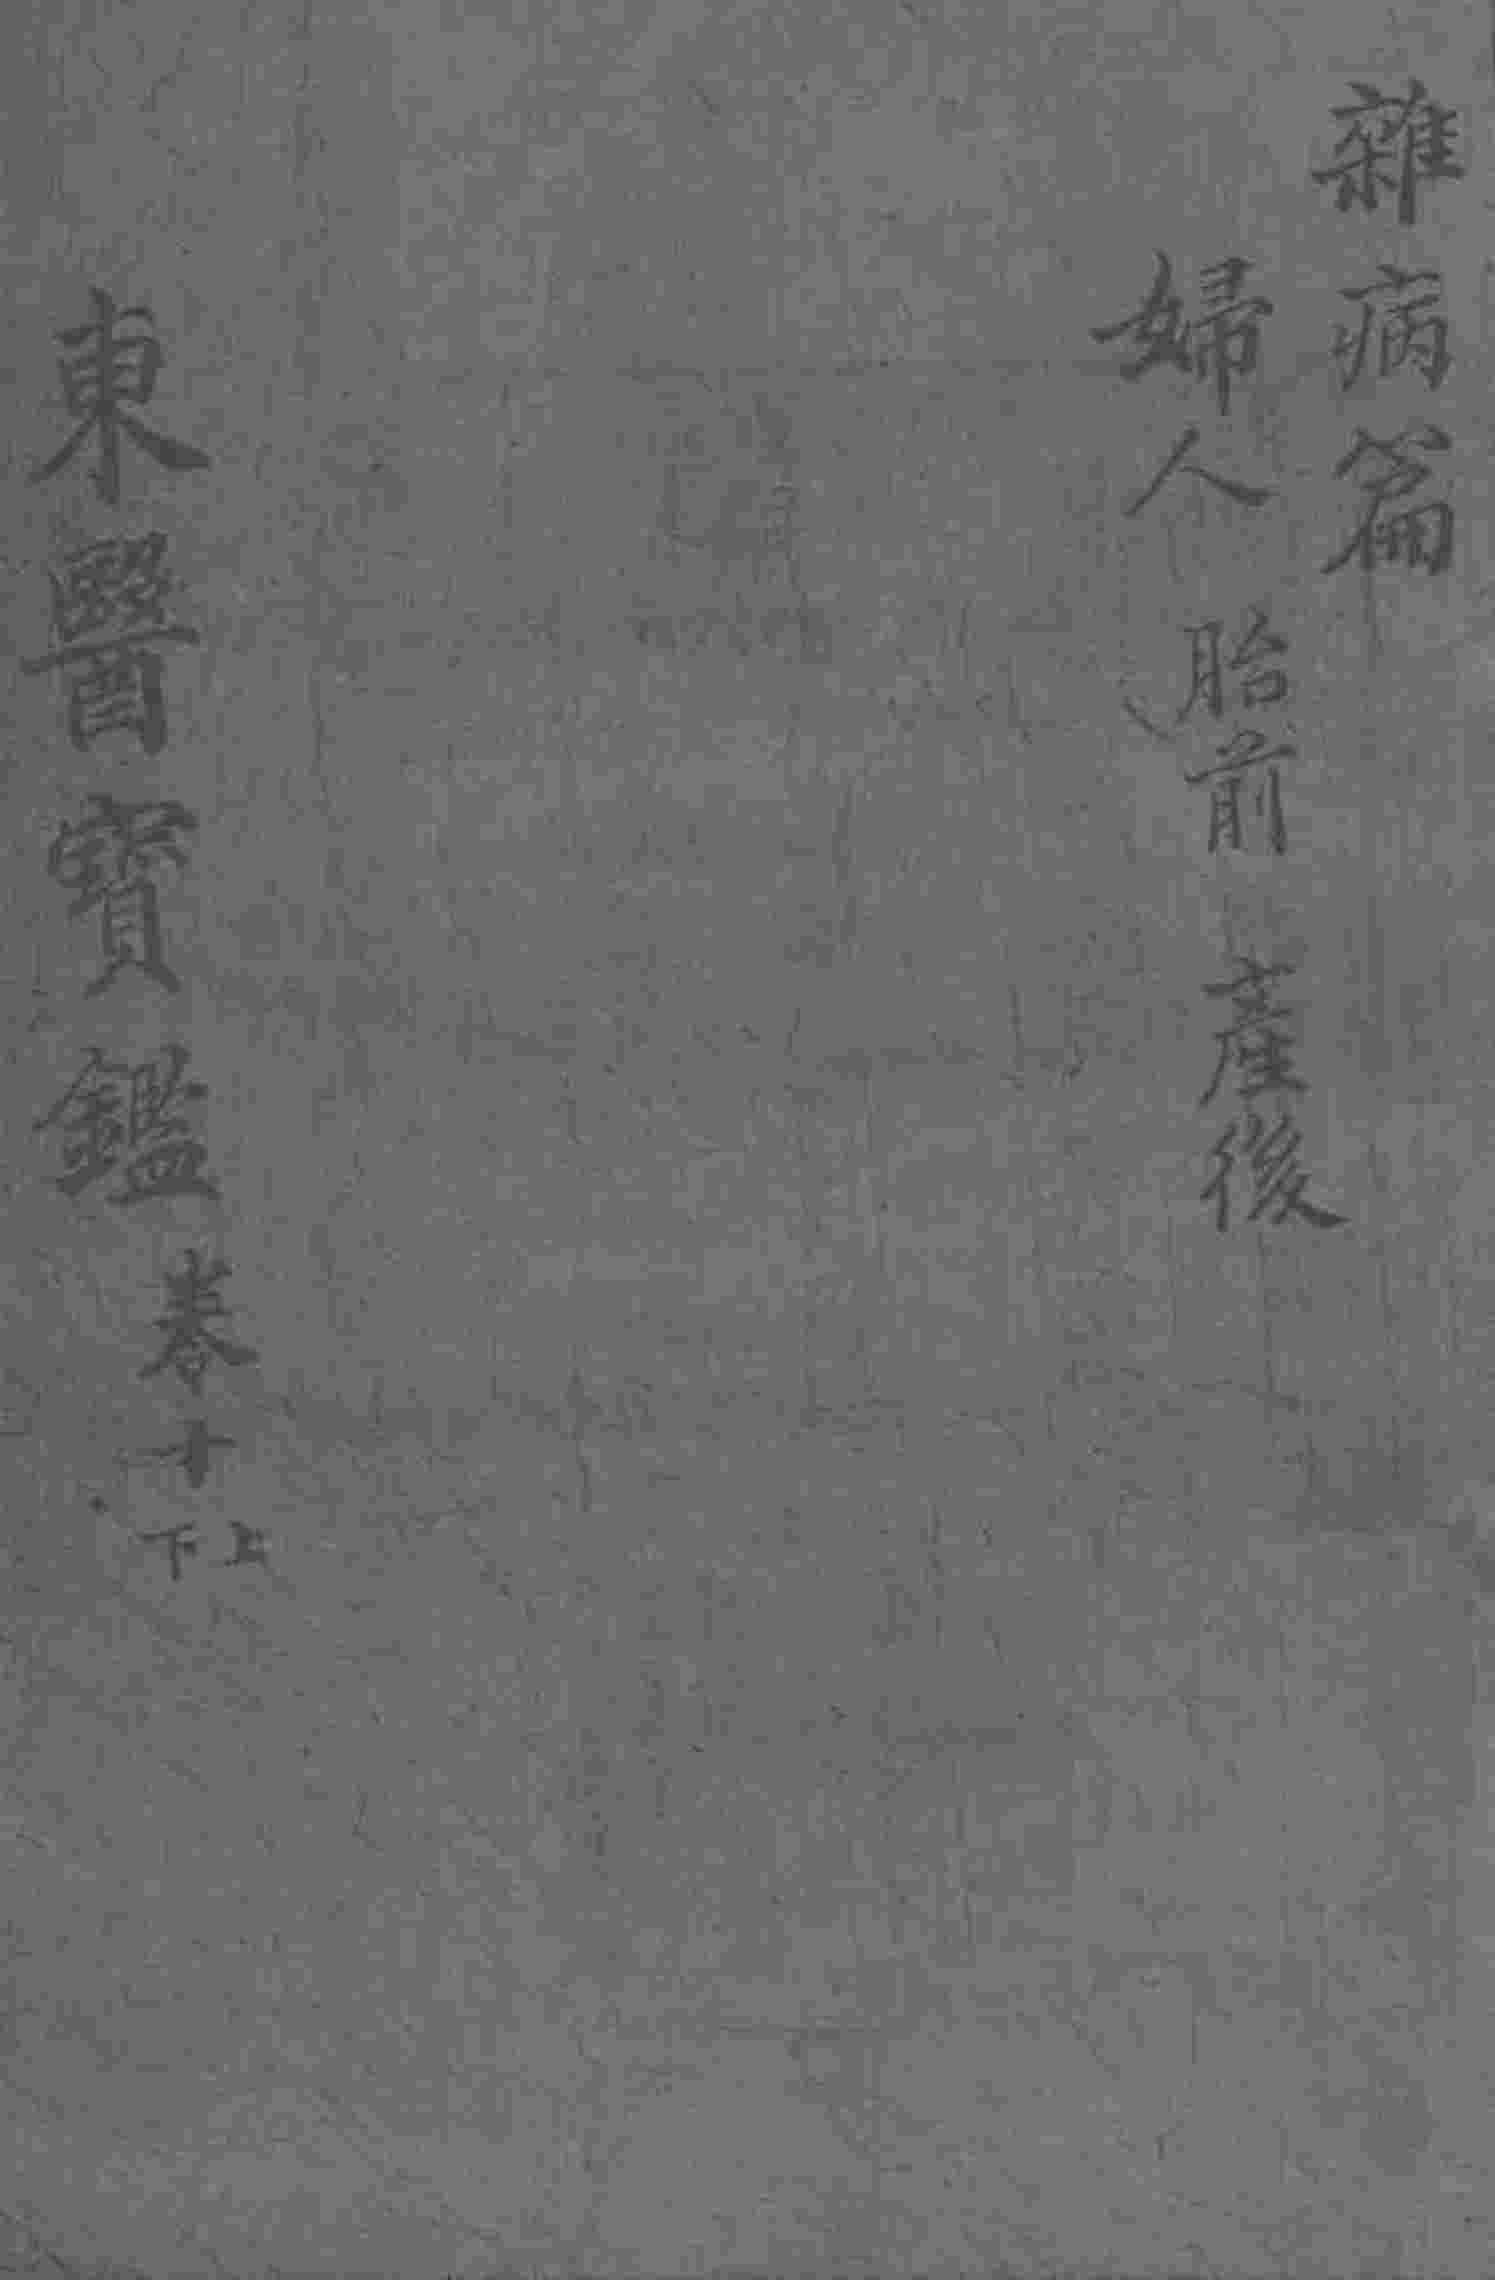 雜病篇
婦人 胎前 產後
東醫寶鑑 卷十 上下